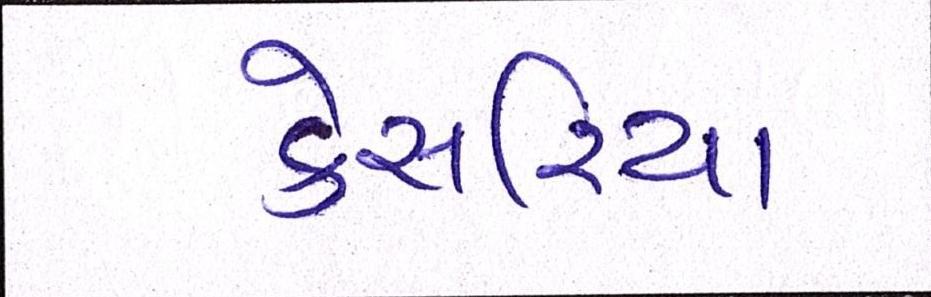 કેસરિયા